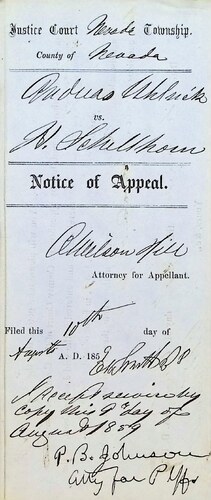 Justice Court Nevada Township.
County of Nevada
Andreas
vs.
H. Schellhorn
Notice of Appeal.
C Wilson Hill
Attorney for Appellant.
Filed this 10th day of
August A. D. 185 E W Smith JP
service by
copy this 9 day of
August 1859
P. B. Johnson
Atty for Plff